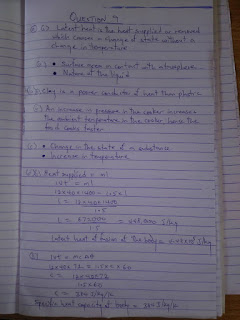 QUESTION 9
(a) (i) Latent heat is the heat supplied or removed
which causes a change of state without a
change in temperature
(ii) • Surface open in contact with atmosphere
• Nature of the liquid
(b) (i) Clay is a poorer conductor of heat than plastic
(ii) An increase in pressure in the cooker increases
the ambient temperature in the cooker, hence the
food cooks faster
(c) • Change in the state of a substance
• Increase in temperature
Heat supplied = ml
IVt = ml
12 x 40 x 1400 = 1.5 x l
l = 12 x 40 x 1400
1.5
l = 672000
1.5
= 448,000 J/kg
Latent heat of fusion of the body = J/kg
IVt = mcΔθ
1.5 x 60
c = J/kg/K
Specific heat capacity of body = J/kg/K